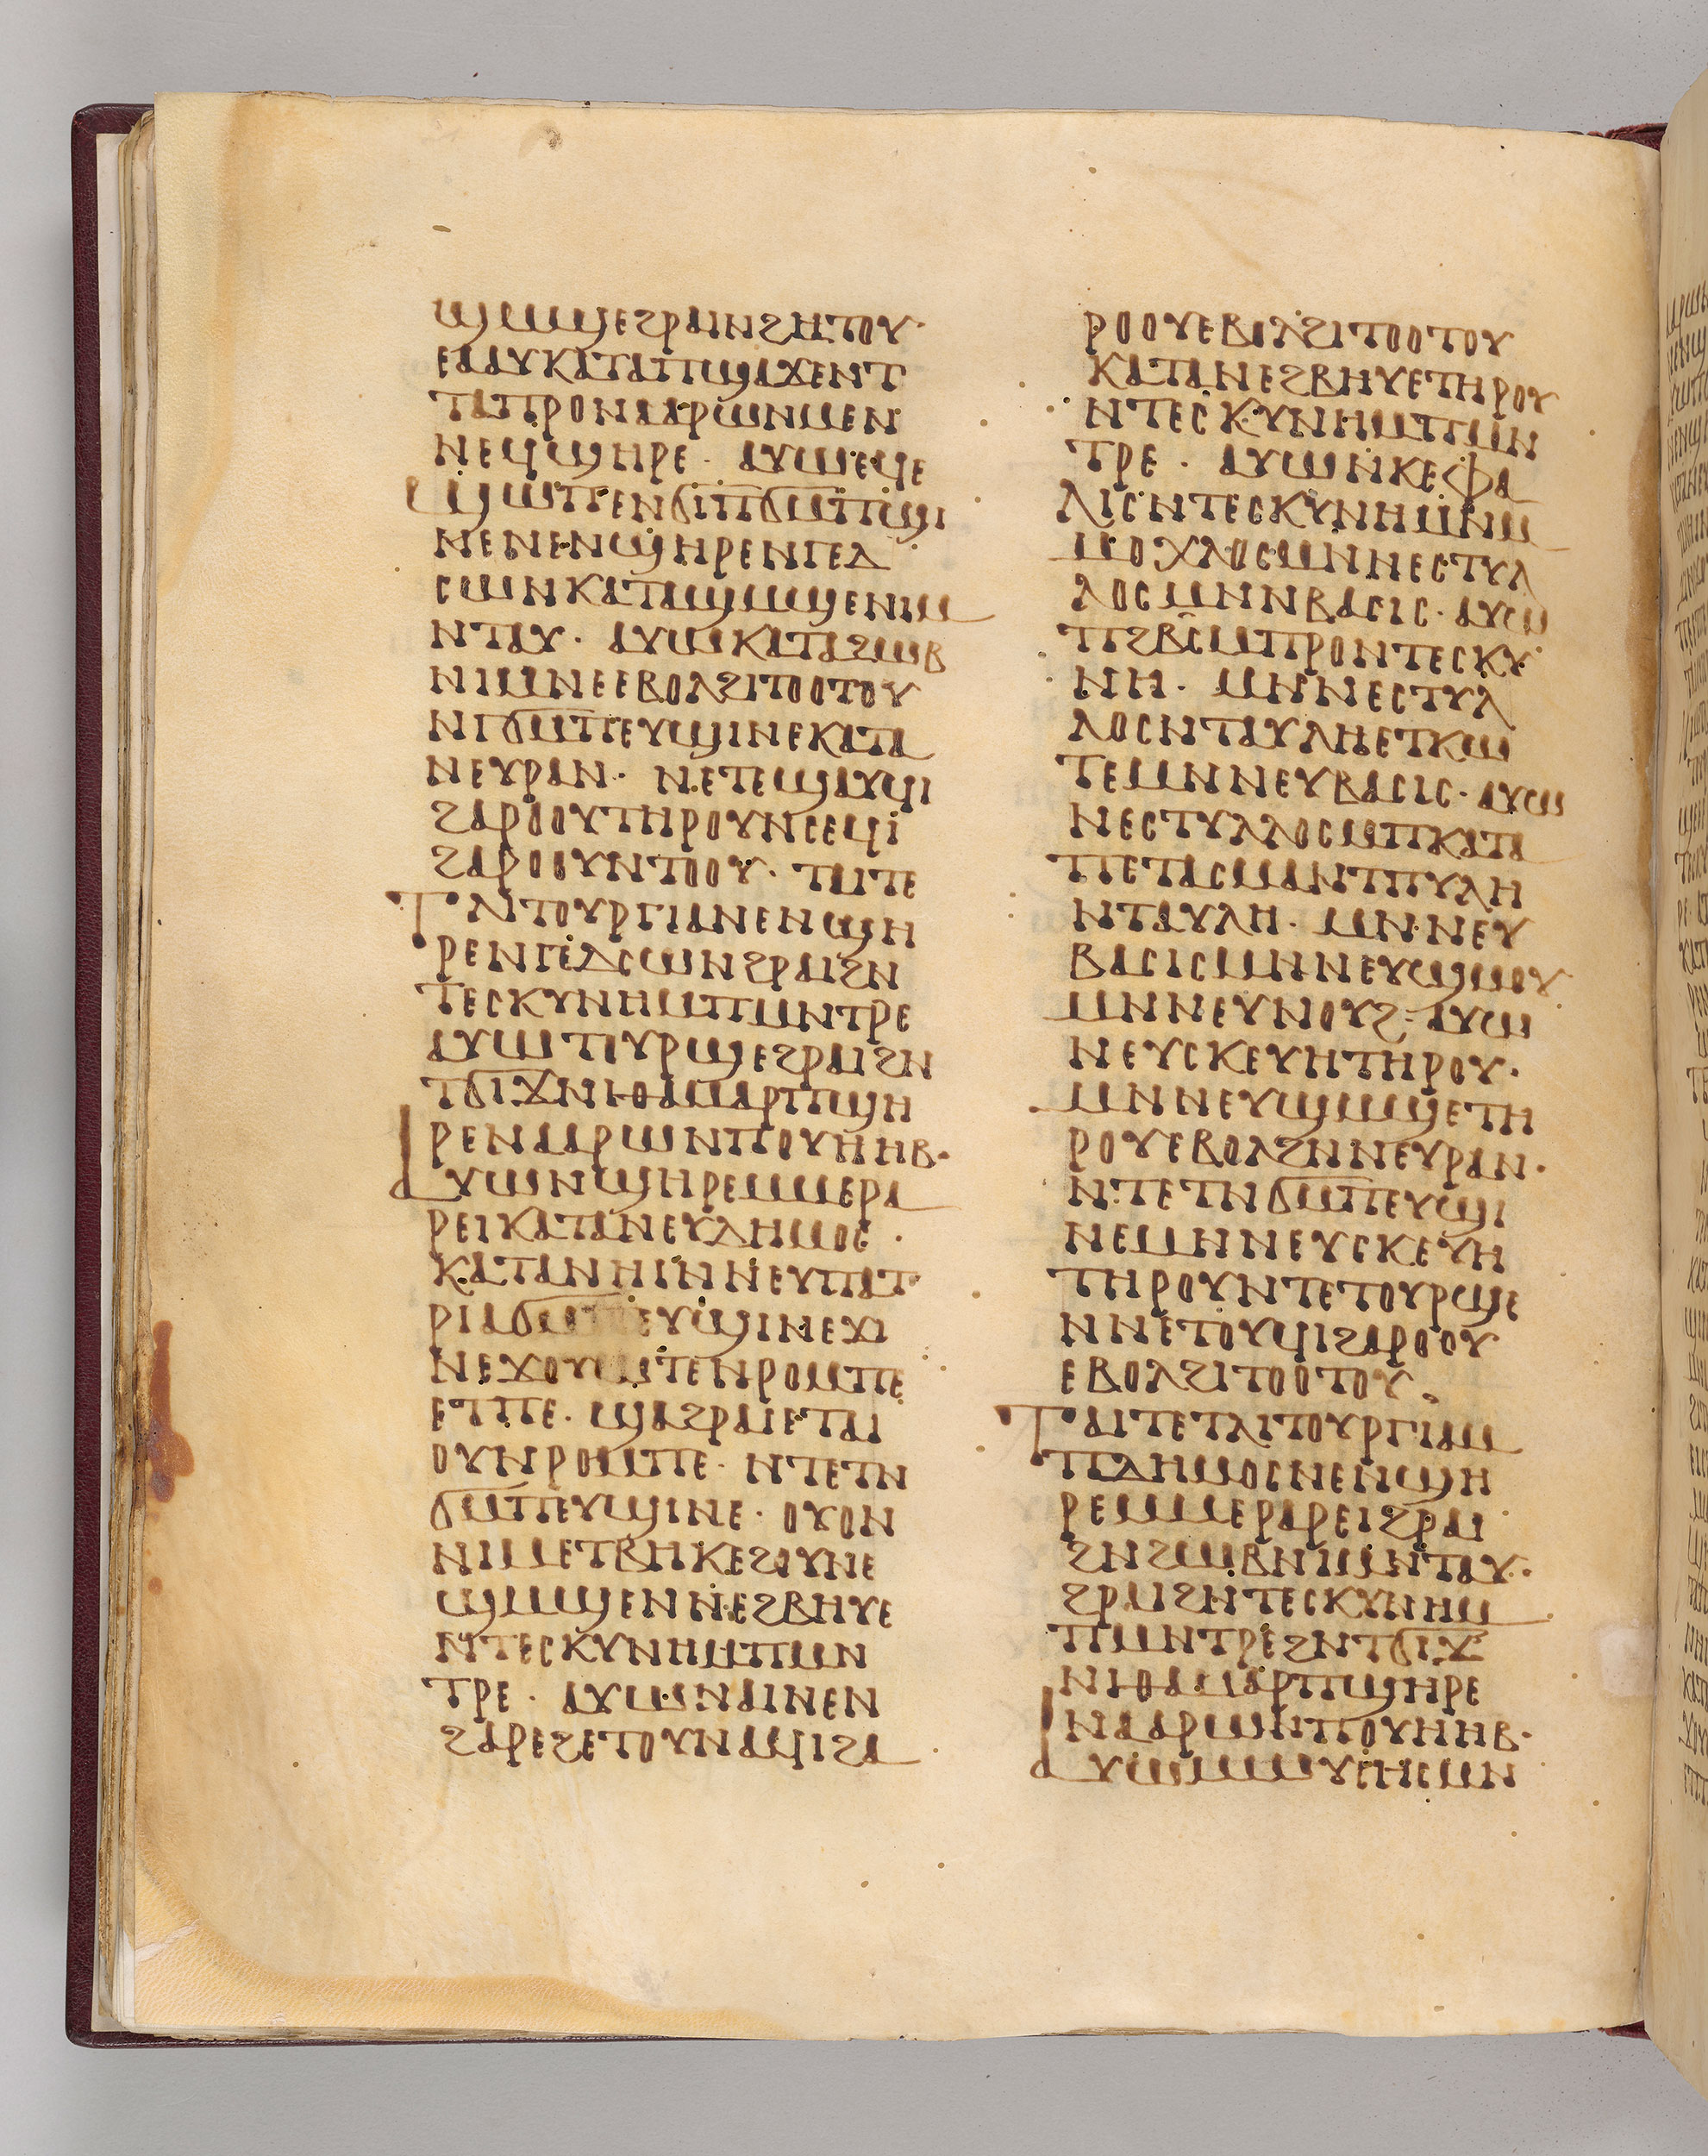 ϣⲙϣⲉϩⲣⲁⲓⲛϩⲏⲧⲟⲩ·
ⲉⲁⲁⲩⲕⲁⲧⲁⲡϣⲁϫⲉⲛⲧ
ⲧⲁⲡⲣⲟⲛⲁⲁⲣⲱⲛⲙⲉⲛ
ⲛⲉϥϣⲏⲣⲉ· ⲁⲩⲱⲉϥⲉ
ϣⲱⲡⲉⲛϭⲓⲡϭⲙⲡϣⲓ
ⲛⲉⲛⲉⲛϣⲏⲣⲉⲛⲅⲉⲇ
ⲥⲱⲛⲕⲁⲧⲁϣⲙϣⲉⲛⲓⲙ
ⲛⲧⲁⲩ· ⲁⲩⲱⲕⲁⲧⲁϩⲱⲃ
ⲛⲓⲙⲛⲉⲉⲃⲟⲗϩⲓⲧⲟⲟⲧⲟⲩ
ⲛⲅϭⲙⲡⲉⲩϣⲓⲛⲉⲕⲁⲧⲁ
ⲛⲉⲩⲣⲁⲛ· ⲛⲉⲧⲉϣⲁⲩϥⲓ
ϩⲁⲣⲟⲟⲩⲧⲏⲣⲟⲩⲛⲥⲉϥⲓ
ϩⲁⲣⲟⲟⲩⲛⲧⲟⲟⲩ· ⲧⲁⲓⲧⲉ
ⲧⲗⲓⲧⲟⲩⲣⲅⲓⲁⲛⲉⲛϣⲏ
ⲣⲉⲛⲅⲉⲇⲥⲱⲛϩⲣⲁⲓϩⲛ
ⲧⲉⲥⲕⲩⲛⲏⲙⲡⲙⲛⲧⲣⲉ
ⲁⲩⲱⲡⲉⲩⲣϣⲉϩⲣⲁⲓϩⲛ
ⲧϭⲓϫⲛⲓⲑⲁⲙⲁⲣⲡϣⲏ
ⲣⲉⲛⲁⲁⲣⲱⲛⲡⲟⲩⲏⲏⲃ·
ⲁⲩⲱⲛϣⲏⲣⲉⲙⲙⲉⲣⲁ
ⲣⲉⲓⲕⲁⲧⲁⲛⲉⲩⲇⲏⲙⲟⲥ·
ⲕⲁⲧⲁⲛⲏⲓⲛⲛⲉⲩⲡⲁⲧ
ⲣⲓⲁϭⲙⲡⲉⲩϣⲓⲛⲉϫⲓ
ⲛⲉϫⲟⲩⲱⲧⲉⲛⲣⲟⲙⲡⲉ
ⲉⲧⲡⲉ· ϣⲁϩⲣⲁⲓⲉⲧⲁⲓ
ⲟⲩⲛⲣⲟⲙⲡⲉ· ⲛⲧⲉⲧⲛ
ϭⲙⲡⲉⲩϣⲓⲛⲉ· ⲟⲩⲟⲛ
ⲛⲓⲙⲉⲧⲃⲏⲕⲉϩⲟⲩⲛⲉ
ϣⲙϣⲉⲛⲛⲉϩⲃⲏⲩⲉ
ⲛⲧⲉⲥⲕⲩⲛⲏⲙⲡⲙⲛ
ⲧⲣⲉ· ⲁⲩⲱⲛⲁⲓⲛⲉⲛ
ϩⲁⲣⲉϩⲉⲧⲟⲩⲛⲁϥⲓϩⲁ
ⲣⲟⲟⲩⲉⲃⲟⲗϩⲓⲧⲟⲟⲧⲟⲩ
ⲕⲁⲧⲁⲛⲉϩⲃⲏⲩⲉⲧⲏⲣⲟⲩ
ⲛⲧⲉⲥⲕⲩⲛⲏⲙⲡⲙⲛ
ⲧⲣⲉ· ⲁⲩⲱⲛⲕⲉⲫⲁ
ⲗⲓⲥⲛⲧⲉⲥⲕⲩⲛⲏⲙⲛⲙ
ⲙⲟⲭⲗⲟⲥⲙⲛⲛⲉⲥⲧⲩⲗ
ⲗⲟⲥⲙⲛⲛⲃⲁⲥⲓⲥ· ⲁⲩⲱ
ⲡϩⲃⲥⲙⲡⲣⲟⲛⲧⲉⲥⲕⲩ
ⲛⲏ· ⲙⲛⲛⲉⲥⲧⲩⲗ
ⲗⲟⲥⲛⲧⲁⲩⲗⲏⲉⲧⲕⲱ
ⲧⲉⲙⲛⲛⲉⲩⲃⲁⲥⲓⲥ· ⲁⲩⲱ
ⲛⲉⲥⲧⲩⲗⲗⲟⲥⲙⲡⲕⲁⲧⲁ
ⲡⲉⲧⲁⲥⲙⲁⲛⲧⲡⲩⲗⲏ
ⲛⲧⲁⲩⲗⲏ· ⲙⲛⲛⲉⲩ
ⲃⲁⲥⲓⲥⲙⲛⲛⲉⲩϣⲙⲟⲩ
ⲙⲛⲛⲉⲩⲛⲟⲩϩ· ⲁⲩⲱ
ⲛⲉⲩⲥⲕⲉⲩⲏⲧⲏⲣⲟⲩ·
ⲙⲛⲛⲉⲩϣⲙϣⲉⲧⲏ
ⲣⲟⲩⲉⲃⲟⲗϩⲛⲛⲉⲩⲣⲁⲛ·
ⲛⲧⲉⲧⲛϭⲙⲡⲉⲩϣⲓ
ⲛⲉⲙⲛⲛⲉⲩⲥⲕⲉⲩⲏ
ⲧⲏⲣⲟⲩⲛⲧⲉⲧⲟⲩⲣϣⲉ
ⲛⲛⲉⲧⲟⲩϥⲓϩⲁⲣⲟⲟⲩ
ⲉⲃⲟⲗϩⲓⲧⲟⲟⲧⲟⲩ·
ⲧⲁⲓⲧⲉⲧⲗⲓⲧⲟⲩⲣⲅⲓⲁⲙ
ⲡⲇⲏⲙⲟⲥⲛⲉⲛϣⲏ
ⲣⲉⲙⲙⲉⲣⲁⲣⲉⲓϩⲣⲁⲓ
ϩⲛϩⲱⲃⲛⲓⲙⲛⲧⲁⲩ·
ϩⲣⲁⲓϩⲛⲧⲉⲥⲕⲩⲛⲏⲙ
ⲡⲙⲛⲧⲣⲉϩⲛⲧϭⲓϫ
ⲛⲓⲑⲁⲙⲁⲣⲡϣⲏⲣⲉ
ⲛⲁⲁⲣⲱⲛⲡⲟⲩⲏⲏⲃ·
ⲁⲩⲱⲙⲙⲱⲩⲥⲏⲥⲙⲛ